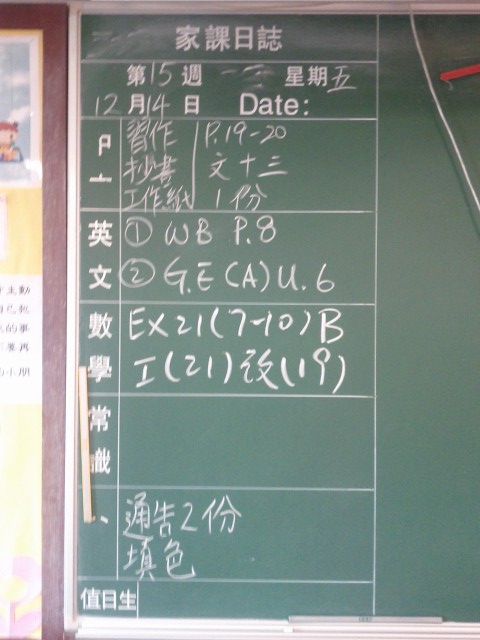 家課日誌
第15週 星期五
12月14日 Date:
習作 P.19-20
抄書 文十三
工作紙 1份
英文 ① WB P.8
② G.E(A)U.6
數學 EX21(7-10)B
I(21)改(19)
常識
通告2份
填色
值日生
主動